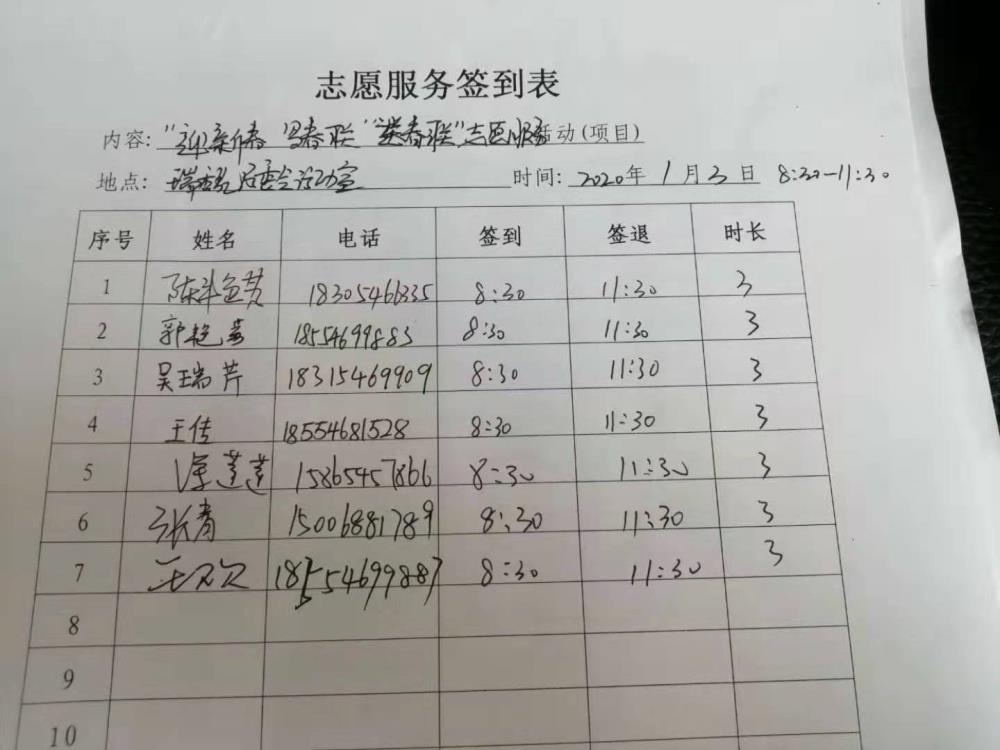 志愿服务签到表
内容:“迎新春 写春联”“送春联”志愿服务活动(项目)
地点: 居委会活动室 时间: 2020年 1月3日 8:30-11:30
序号 姓名 电话 签到 签退 时长
1 18305466335 8:30 11:30 3
2 郭艳 18554699883 8:30 11:30 3
3 吴瑞芹 18315469909 8:30 11:30 3
4 王传 18554681528 8:30 11:30 3
5 莲莲 15865457866 8:30 11:30 3
6 张青 15006881789 8:30 11:30 3
7 王 18554699887 8:30 11:30 3
8
9
10